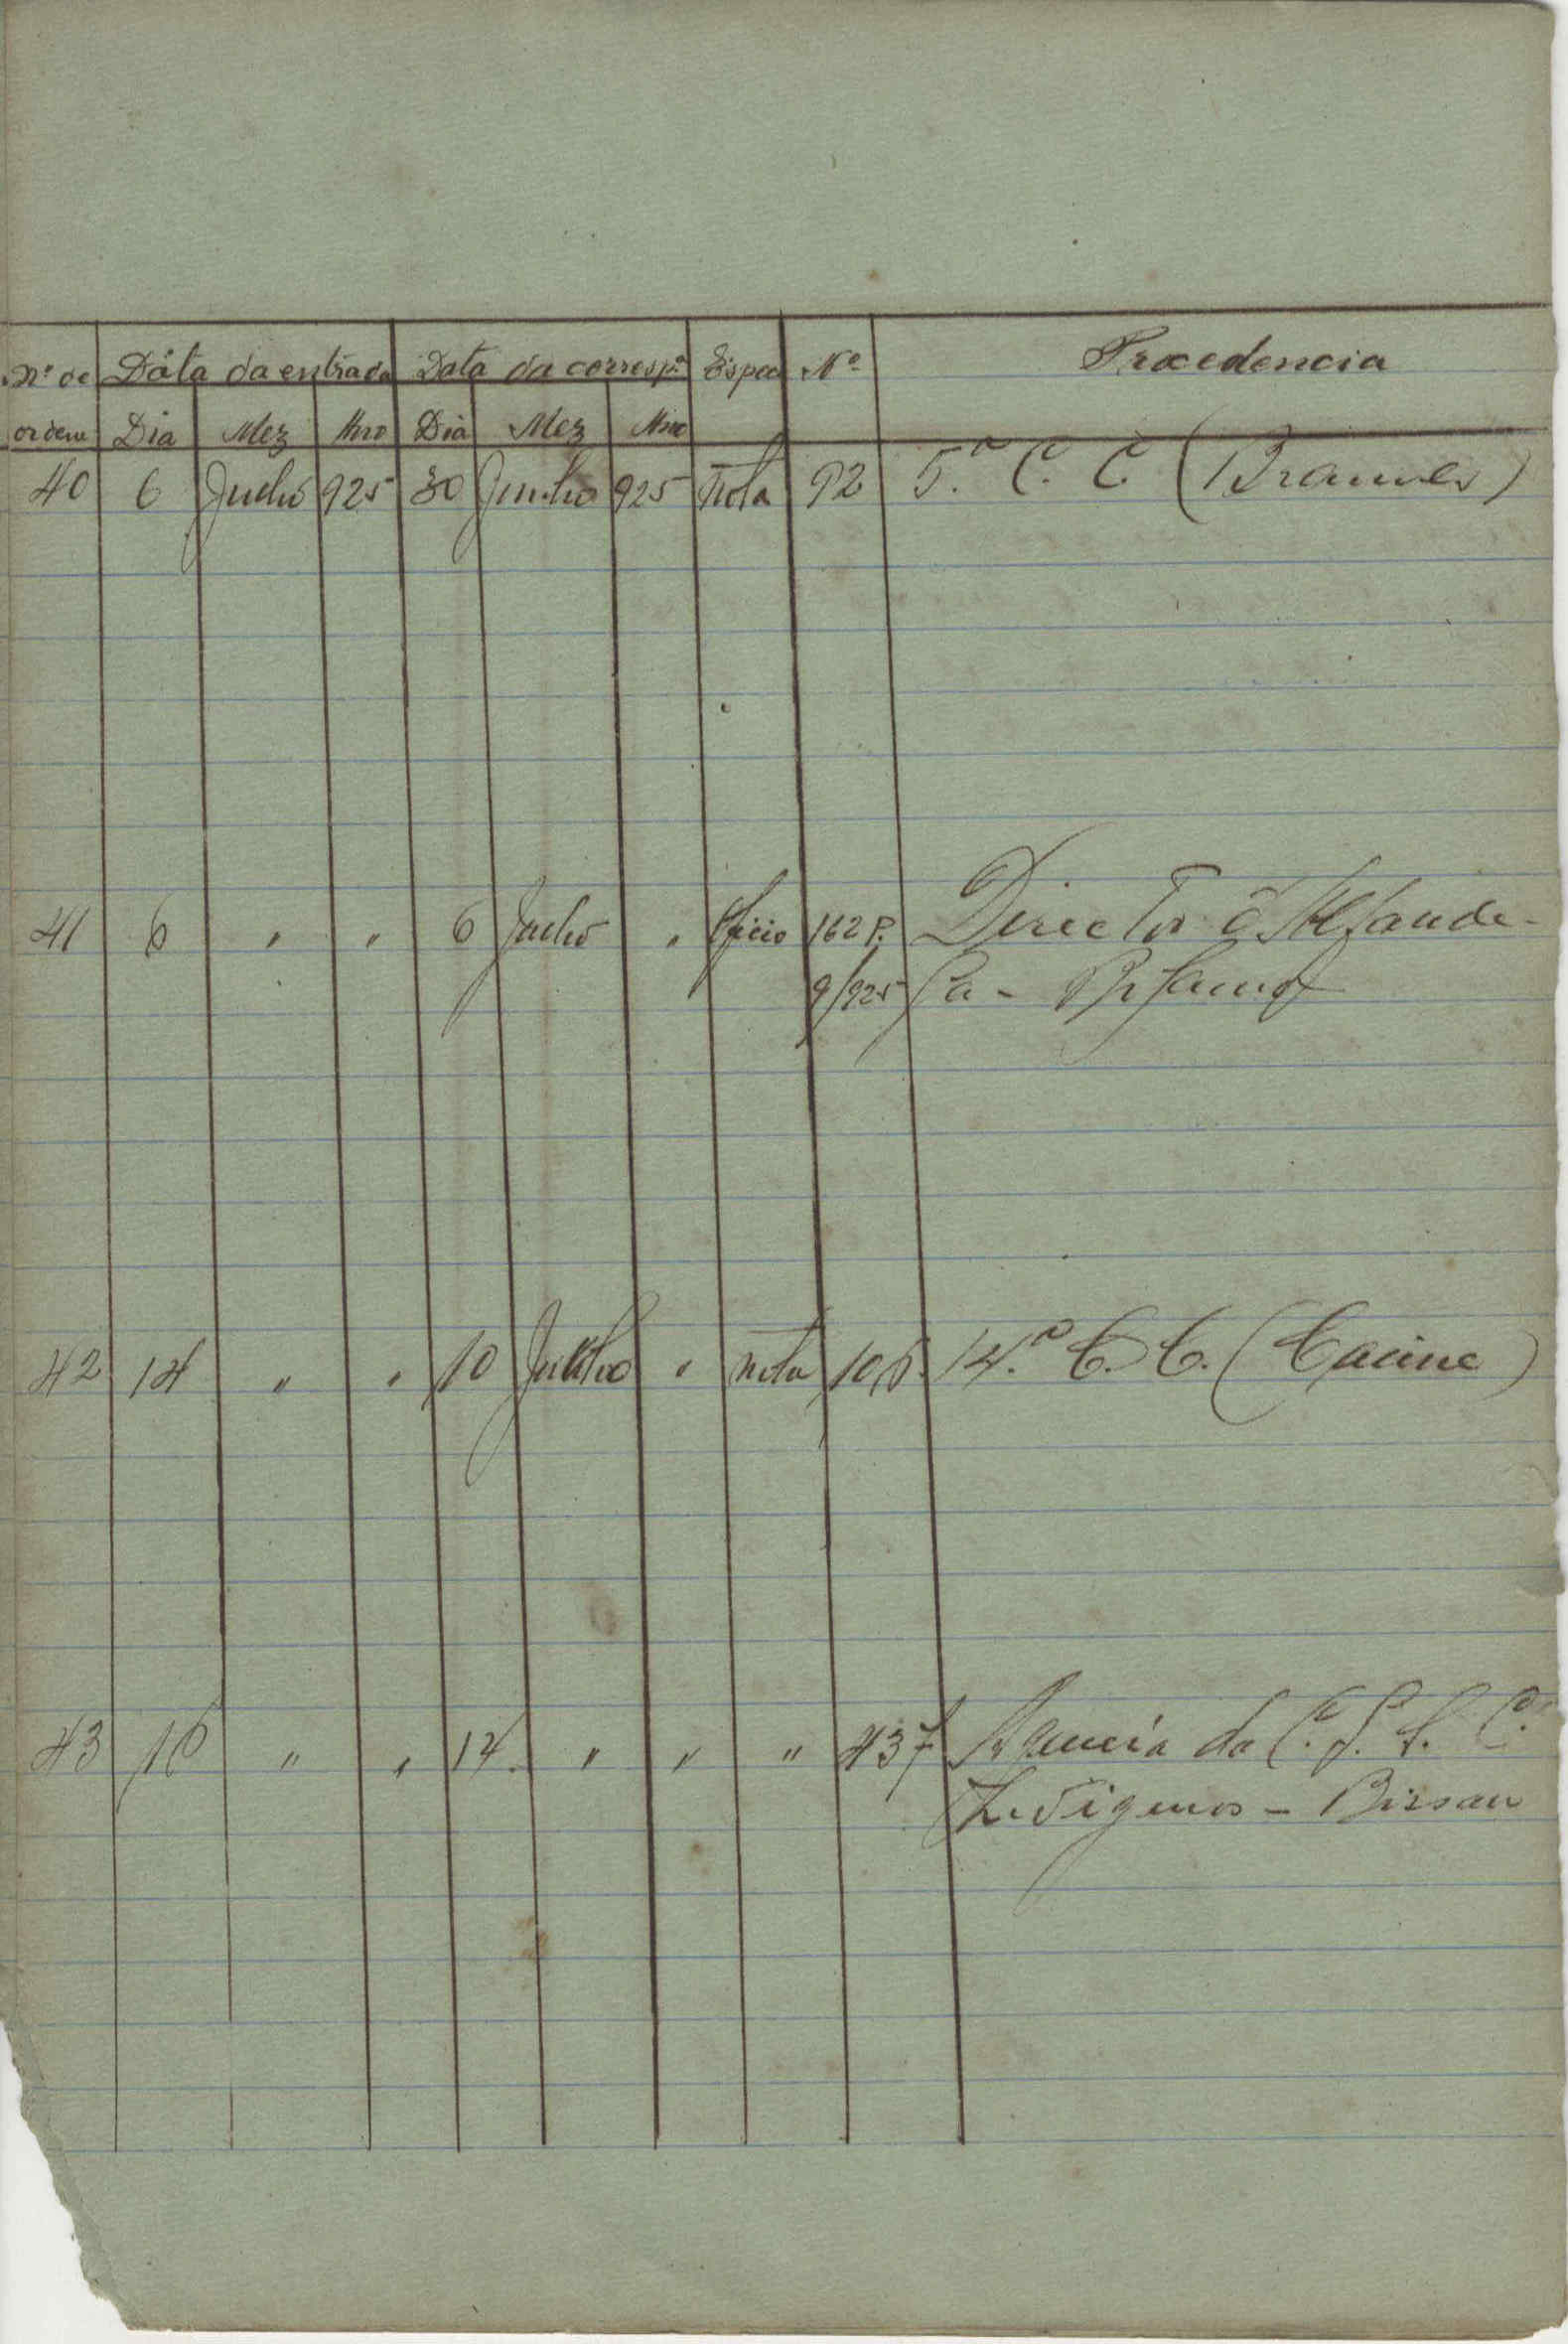 Nº de Dáta da entrada Data da corresp.ª Espec Nº Procedencia
ordem Dia Mez Ano Dia Mez Ano
40 6 Julho 925 30 Junho 925 Nota 92 5.ª C. C. (Brames)
41 6 " " 6 Julho " Oficio 162 P. Director d'Alfande-
9/925 ga - Bolama
42 14 " " 10 Julho " nota 14.ª C. C. (Cacine)
43 16 " " 14 " " " 437 Agencia da C.
Indigenos - Bissau